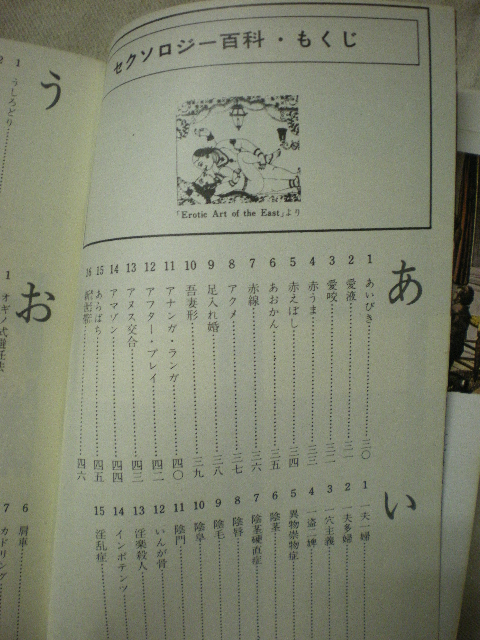 セクソロジー百科・もくじ
「Erotic Art of the East」より
あ
1 あいびき 三〇
2 愛液 三一
3 愛咬 三二
4 赤うま 三三
5 赤えぼし 三四
6 あおかん 三五
7 赤線 三六
8 アクメ 三七
9 足入れ婚 三八
10 吾妻形 三九
11 アナンガ・ランガ 四〇
12 アフター・プレイ 四二
13 アヌス交合 四三
14 アマゾン 四四
15 あらばち 四五
16 四六
い
1 一夫一婦
2 一夫多婦
3 一穴主義
4 一盗二婢
5 異物崇物症
6 陰茎
7 陰茎硬直症
8 陰唇
9 陰毛
10 陰阜
11 陰門
12 いんが骨
13 淫楽殺人
14 インポテンツ
15 淫乱症
う
1 うしろどり
2
お
1 オギノ式避妊法
6 肩車
7 カドリング